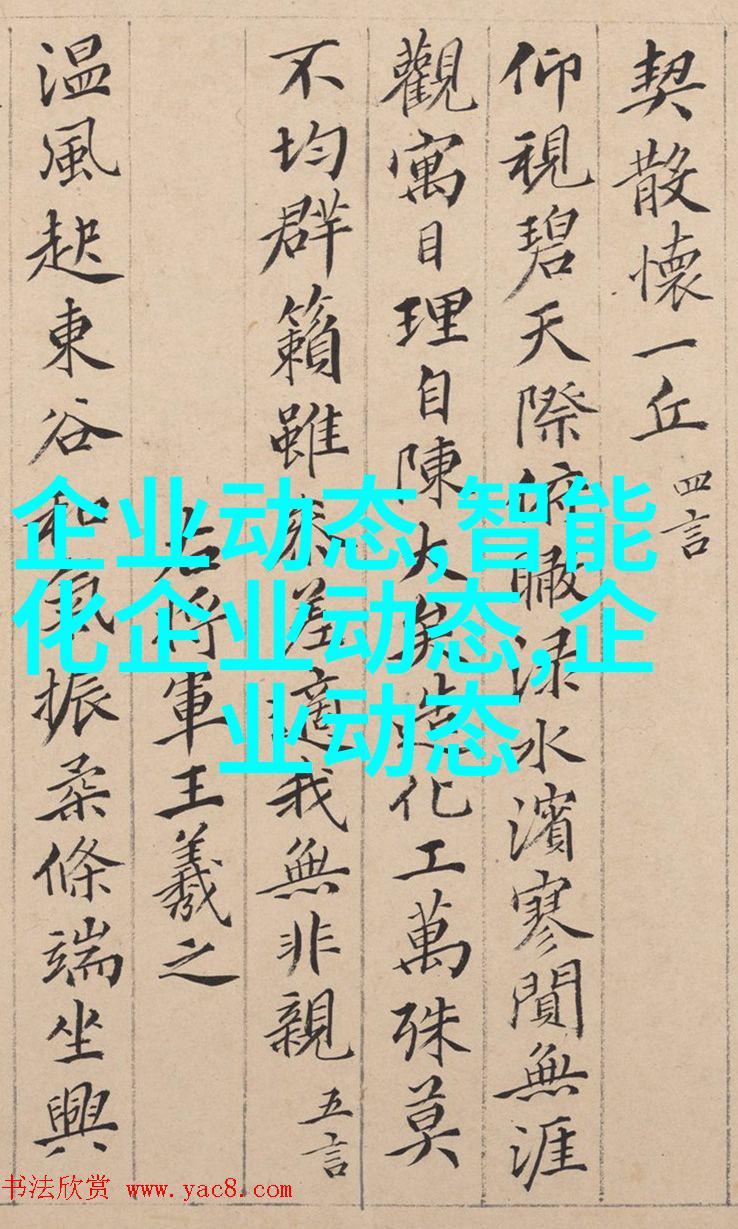 契散懷一丘 四言
仰視碧天際俯瞰淥水濱寥閴無涯
觀寓目理自陳大矣造化工萬殊莫
不均群籟雖參差適我無非親 五言
右將軍王羲之
温風起東谷和氣振柔條端坐興
企业动态,智能
化企业动态,企
业动态
书法欣赏 www.yac8.com